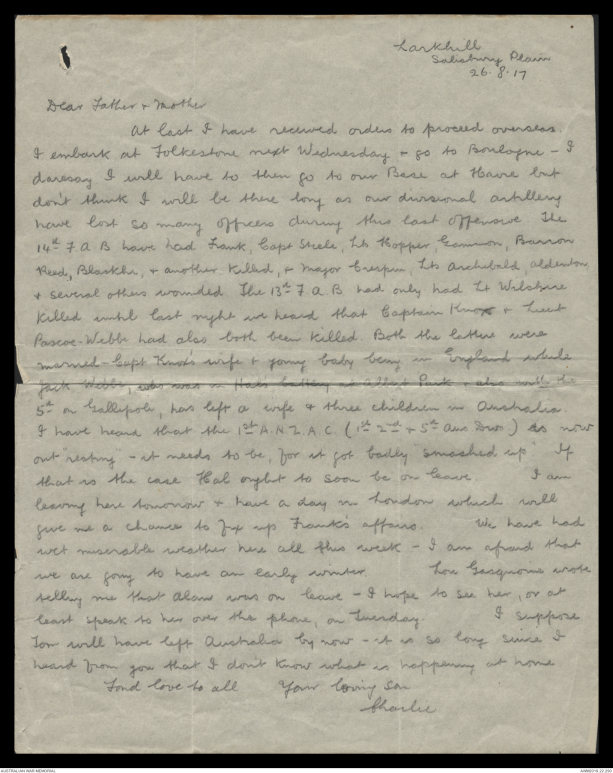 Larkhill
Salisbury Plain
26.8.17
Dear Father & Mother
At last I have received orders to proceed overseas.
I embark at Folkestone next Wednesday & go to Boulogne - I
daresay I will have to then go to our Base at Havre but
don't think I will be there long as our divisional artillery
have lost so many officers during this last offensive. The
14th F A B have had Frank, Capt Steele, Lts Hopper
Reed, & another killed, & Major Crespin, Lts Archibald,
& several others wounded. The 13th F.A.B had only had Lt Wilshire
killed until last night we heard that Captain Knox & Lieut
Pascoe-Webbe had also both been killed. Both the latter were
married - Capt Knox's wife & young baby being in England while
Jack Webbe, who was in Hal's battery at Albert Park & also with the
5th on Gallipoli, has left a wife & three children in Australia.
I have heard that the 1st A.N.Z.A.C. (1st 2nd & 5th Aus Divs.) is now
out "resting" - it needs to be, for it got badly "smashed up". If
that is the case Hal ought to soon be on leave. I am
leaving here tomorrow & have a day in London which will
give me a chance to fix up Frank's affairs. We have had
wet miserable weather here all this week - I am afraid that
we are going to have an early winter. Lou Gasquoine wrote
telling me that Alan was on leave - I hope to see her, or at
least speak to her over the phone, on Tuesday. I suppose
will have left Australia by now - it is so long since I
heard from you that I don't know what is happening at home
Fond love to all Your loving son
Charlie
AUSTRALIAN WAR MEMORIAL